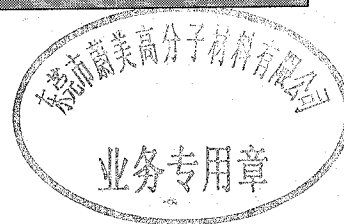 东莞市蔚美高分子材料有限公司
业务专用章